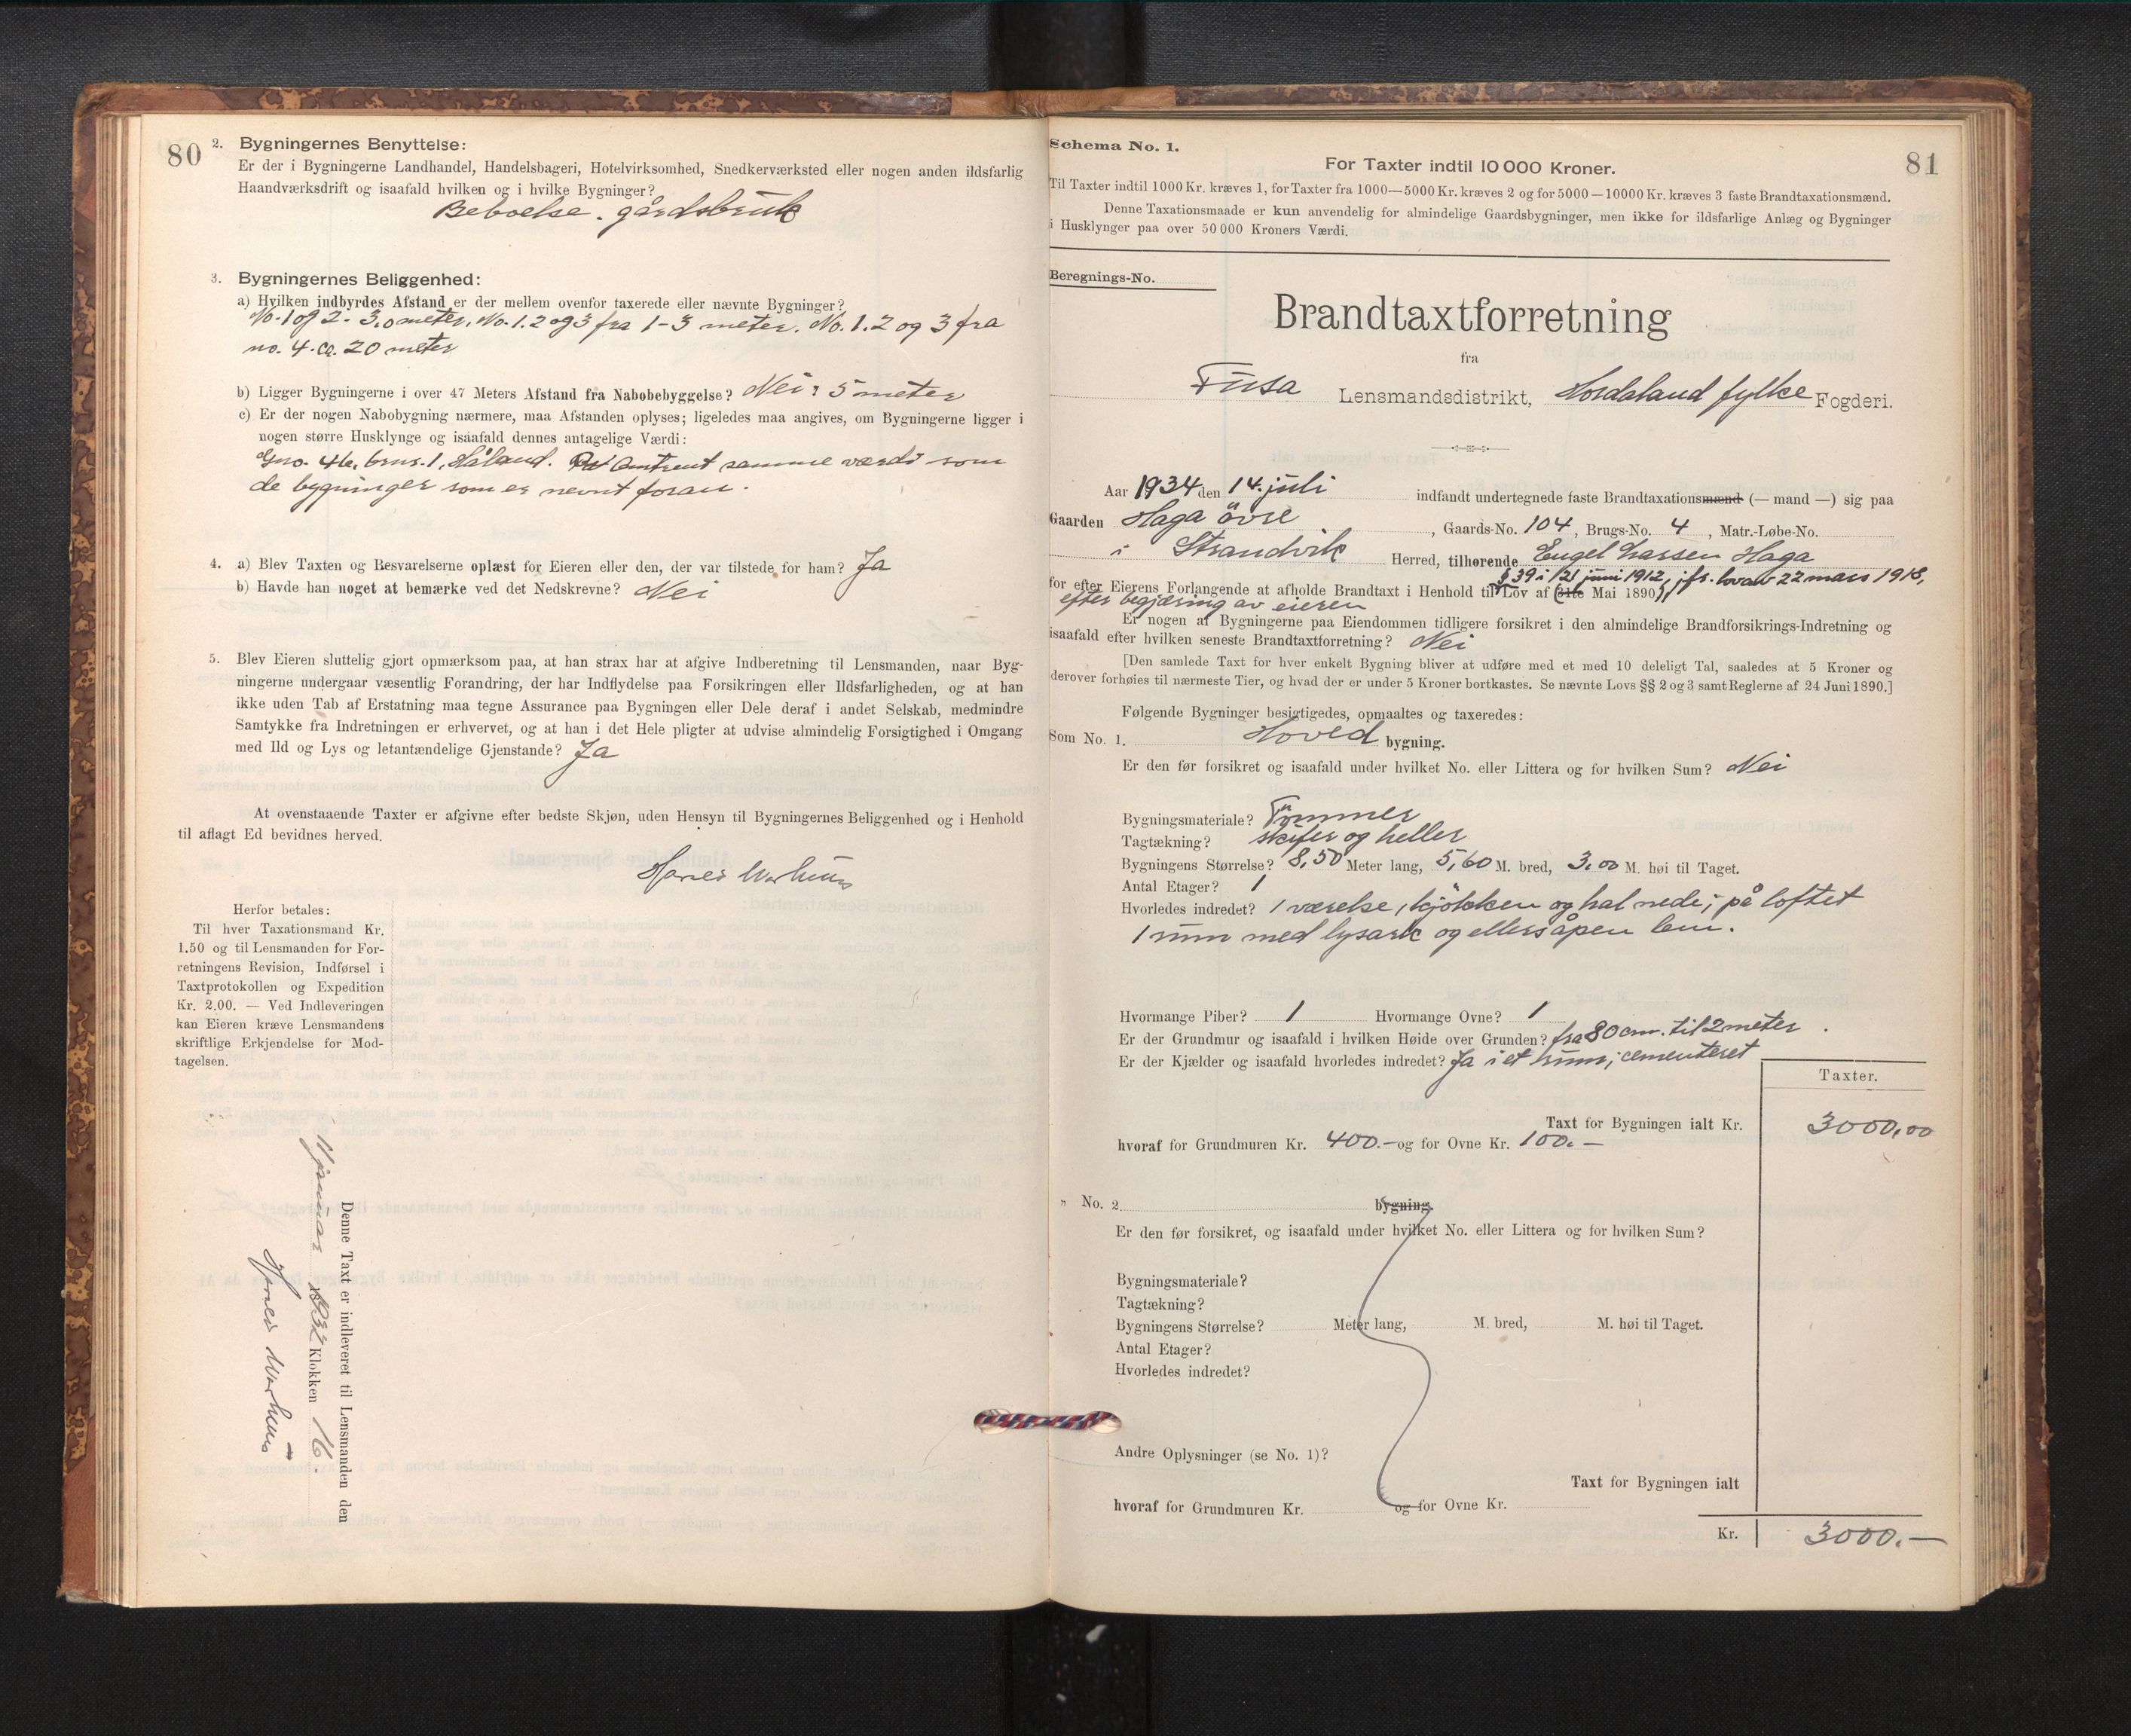 80
2. Bygningernes Benyttelse:
Er der i Bygningerne Landhandel, Handelsbageri, Hotelvirksomhed, Snedkerværksted eller nogen anden ildsfarlig
Haandværksdrift og isaafald hvilken og i hvilke Bygninger?
Beboelse. gårdsbruk
3. Bygningernes Beliggenhed:
a) Hvilken indbyrdes Afstand er der mellem ovenfor taxerede eller nævnte Bygninger?
No. 1 og 2 - 3,0 meter, No. 1. 2 og 3 fra 1-3 meter. No. 1. 2 og 3 fra
no. 4. ca. 20 meter
b) Ligger Bygningerne i over 47 Meters Afstand fra Nabobebyggelse? Nei: 5 meter
c) Er der nogen Nabobygning nærmere, maa Afstanden oplyses; ligeledes maa angives, om Bygningerne ligger i
nogen større Husklynge og isaafald dennes antagelige Værdi:
Gno. 46, brnr. 1, Håland. Omtrent samme værdi som
de bygninger som er nevnt foran.
4. a) Blev Taxten og Besvarelserne oplæst for Eieren eller den, der var tilstede for ham? Ja
b) Havde han noget at bemærke ved det Nedskrevne? Nei
5. Blev Eieren sluttelig gjort opmærksom paa, at han strax har at afgive Indberetning til Lensmanden, naar Byg-
ningerne undergaar væsentlig Forandring, der har Indflydelse paa Forsikringen eller Ildsfarligheden, og at han
ikke uden Tab af Erstatning maa tegne Assurance paa Bygningen eller Dele deraf i andet Selskab, medmindre
Samtykke fra Indretningen er erhvervet, og at han i det Hele pligter at udvise almindelig Forsigtighed i Omgang
med Ild og Lys og letantændelige Gjenstande? Ja
At ovenstaaende Taxter er afgivne efter bedste Skjøn, uden Hensyn til Bygningernes Beliggenhed og i Henhold
til aflagt Ed bevidnes herved.
Herfor betales:
Til hver Taxationsmand Kr.
1.50 og til Lensmanden for For-
retningens Revision, Indførsel i
Taxtprotokollen og Expedition
Kr. 2.00. — Ved Indleveringen
kan Eieren kræve Lensmandens
skriftlige Erkjendelse for Mod-
tagelsen.
Denne Taxt er indleveret til Lensmanden den
1932 Klokken 16.
81
Schema No. 1.
For Taxter indtil 10 000 Kroner.
Til Taxter indtil 1000 Kr. kræves 1, for Taxter fra 1000—5000 Kr. kræves 2 og for 5000—10000 Kr. kræves 3 faste Brandtaxationsmænd.
Denne Taxationsmaade er kun anvendelig for almindelige Gaardsbygninger, men ikke for ildsfarlige Anlæg og Bygninger
i Husklynger paa over 50 000 Kroners Værdi.
Beregnings-No.
Brandtaxtforretning
fra
Fusa Lensmandsdistrikt, Hordaland fylke Fogderi.
Aar 1934 den 14. juli indfandt undertegnede faste Brandtaxationsmænd (— mand —) sig paa
Gaarden Haga övre, Gaards-No. 104, Brugs-No. 4, Matr.-Løbe-No.
i Strandvik Herred, tilhørende Engel Larsen Haga
§ 39 i 121 juni 1912, jfr. lov av 22 mars 1918,
for efter Eierens Forlangende at afholde Brandtaxt i Henhold til Lov af (31te Mai 1890),
efter begjæring av eieren
Er nogen af Bygningerne paa Eiendommen tidligere forsikret i den almindelige Brandforsikrings-Indretning og
isaafald efter hvilken seneste Brandtaxtforretning? Nei
[Den samlede Taxt for hver enkelt Bygning bliver at udføre med et med 10 deleligt Tal, saaledes at 5 Kroner og
derover forhøies til nærmeste Tier, og hvad der er under 5 Kroner bortkastes. Se nævnte Lovs §§ 2 og 3 samt Reglerne af 24 Juni 1890.]
Følgende Bygninger besigtigedes, opmaaltes og taxeredes:
Som No. 1. Hoved bygning.
Er den før forsikret og isaafald under hvilket No. eller Littera og for hvilken Sum? Nei
Bygningsmateriale? Tömmer
Tagtækning? skifer og heller
Bygningens Størrelse? 8,50 Meter lang, 5,60 M. bred, 3,00 M. høi til Taget.
Antal Etager? 1
Hvorledes indredet? 1 værelse, kjökken og hal nede; på loftet
1 rum med lysark og ellers åpen lem.
Hvormange Piber? 1 Hvormange Ovne? 1
Er der Grundmur og isaafald i hvilken Høide over Grunden? fra 80 cm. til 2 meter.
Er der Kjælder og isaafald hvorledes indredet? Ja i et rum; cementeret
Taxter.
Taxt for Bygningen ialt Kr. 3000,00
hvoraf for Grundmuren Kr. 400.- og for Ovne Kr. 100.—
" No. 2. bygning.
Er den før forsikret, og isaafald under hvilket No. eller Littera og for hvilken Sum?
Bygningsmateriale?
Tagtækning?
Bygningens Størrelse? Meter lang, M. bred, M. høi til Taget.
Antal Etager?
Hvorledes indredet?
Andre Oplysninger (se No. 1)?
Taxt for Bygningen ialt
hvoraf for Grundmuren Kr. og for Ovne Kr.
Kr. 3000.—